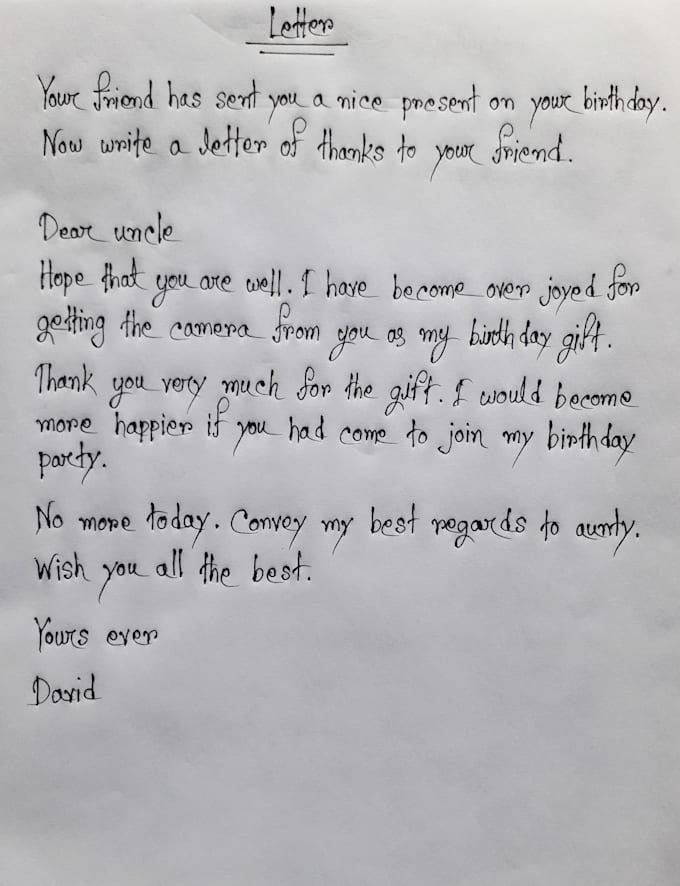 Letter
Your friend has sent you a nice present on your birthday.
Now write a letter of thanks to your friend.
Dear uncle
Hope that you are well. I have become over joyed for
getting the camera from you as my birth day gift.
Thank you very much for the gift. I would become
more happier if you had come to join my birthday
party.
No more today. Convey my best regards to aunty.
Wish you all the best.
Yours ever
David